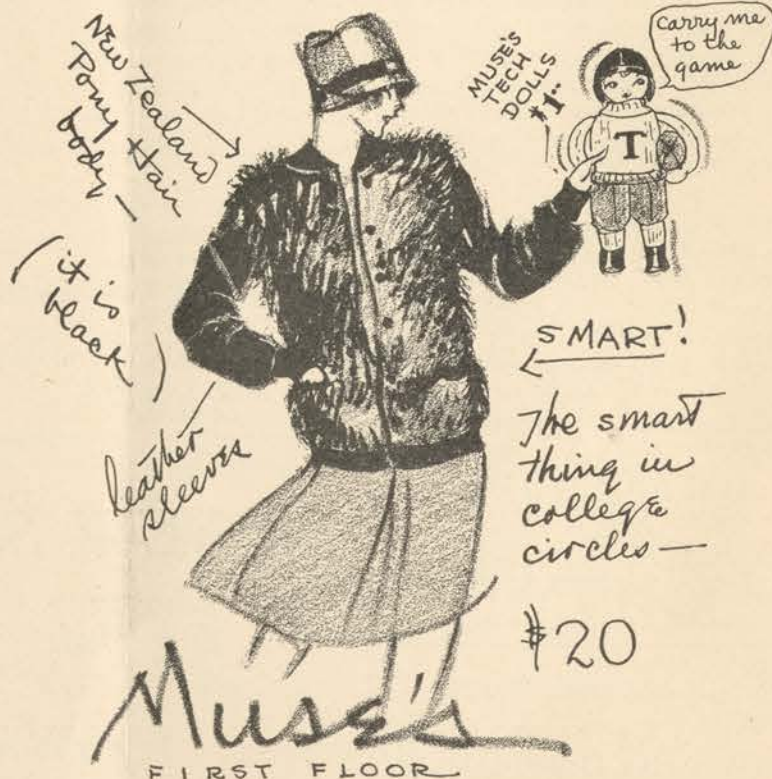 New Zealand
Pony Hair
body —
(it is
black)
leather
sleeves
MUSE'S
TECH
DOLLS
$1..
carry me
to the
game
T
SMART!
The smart
thing in
college
circles —
$20
Muse's
FIRST FLOOR